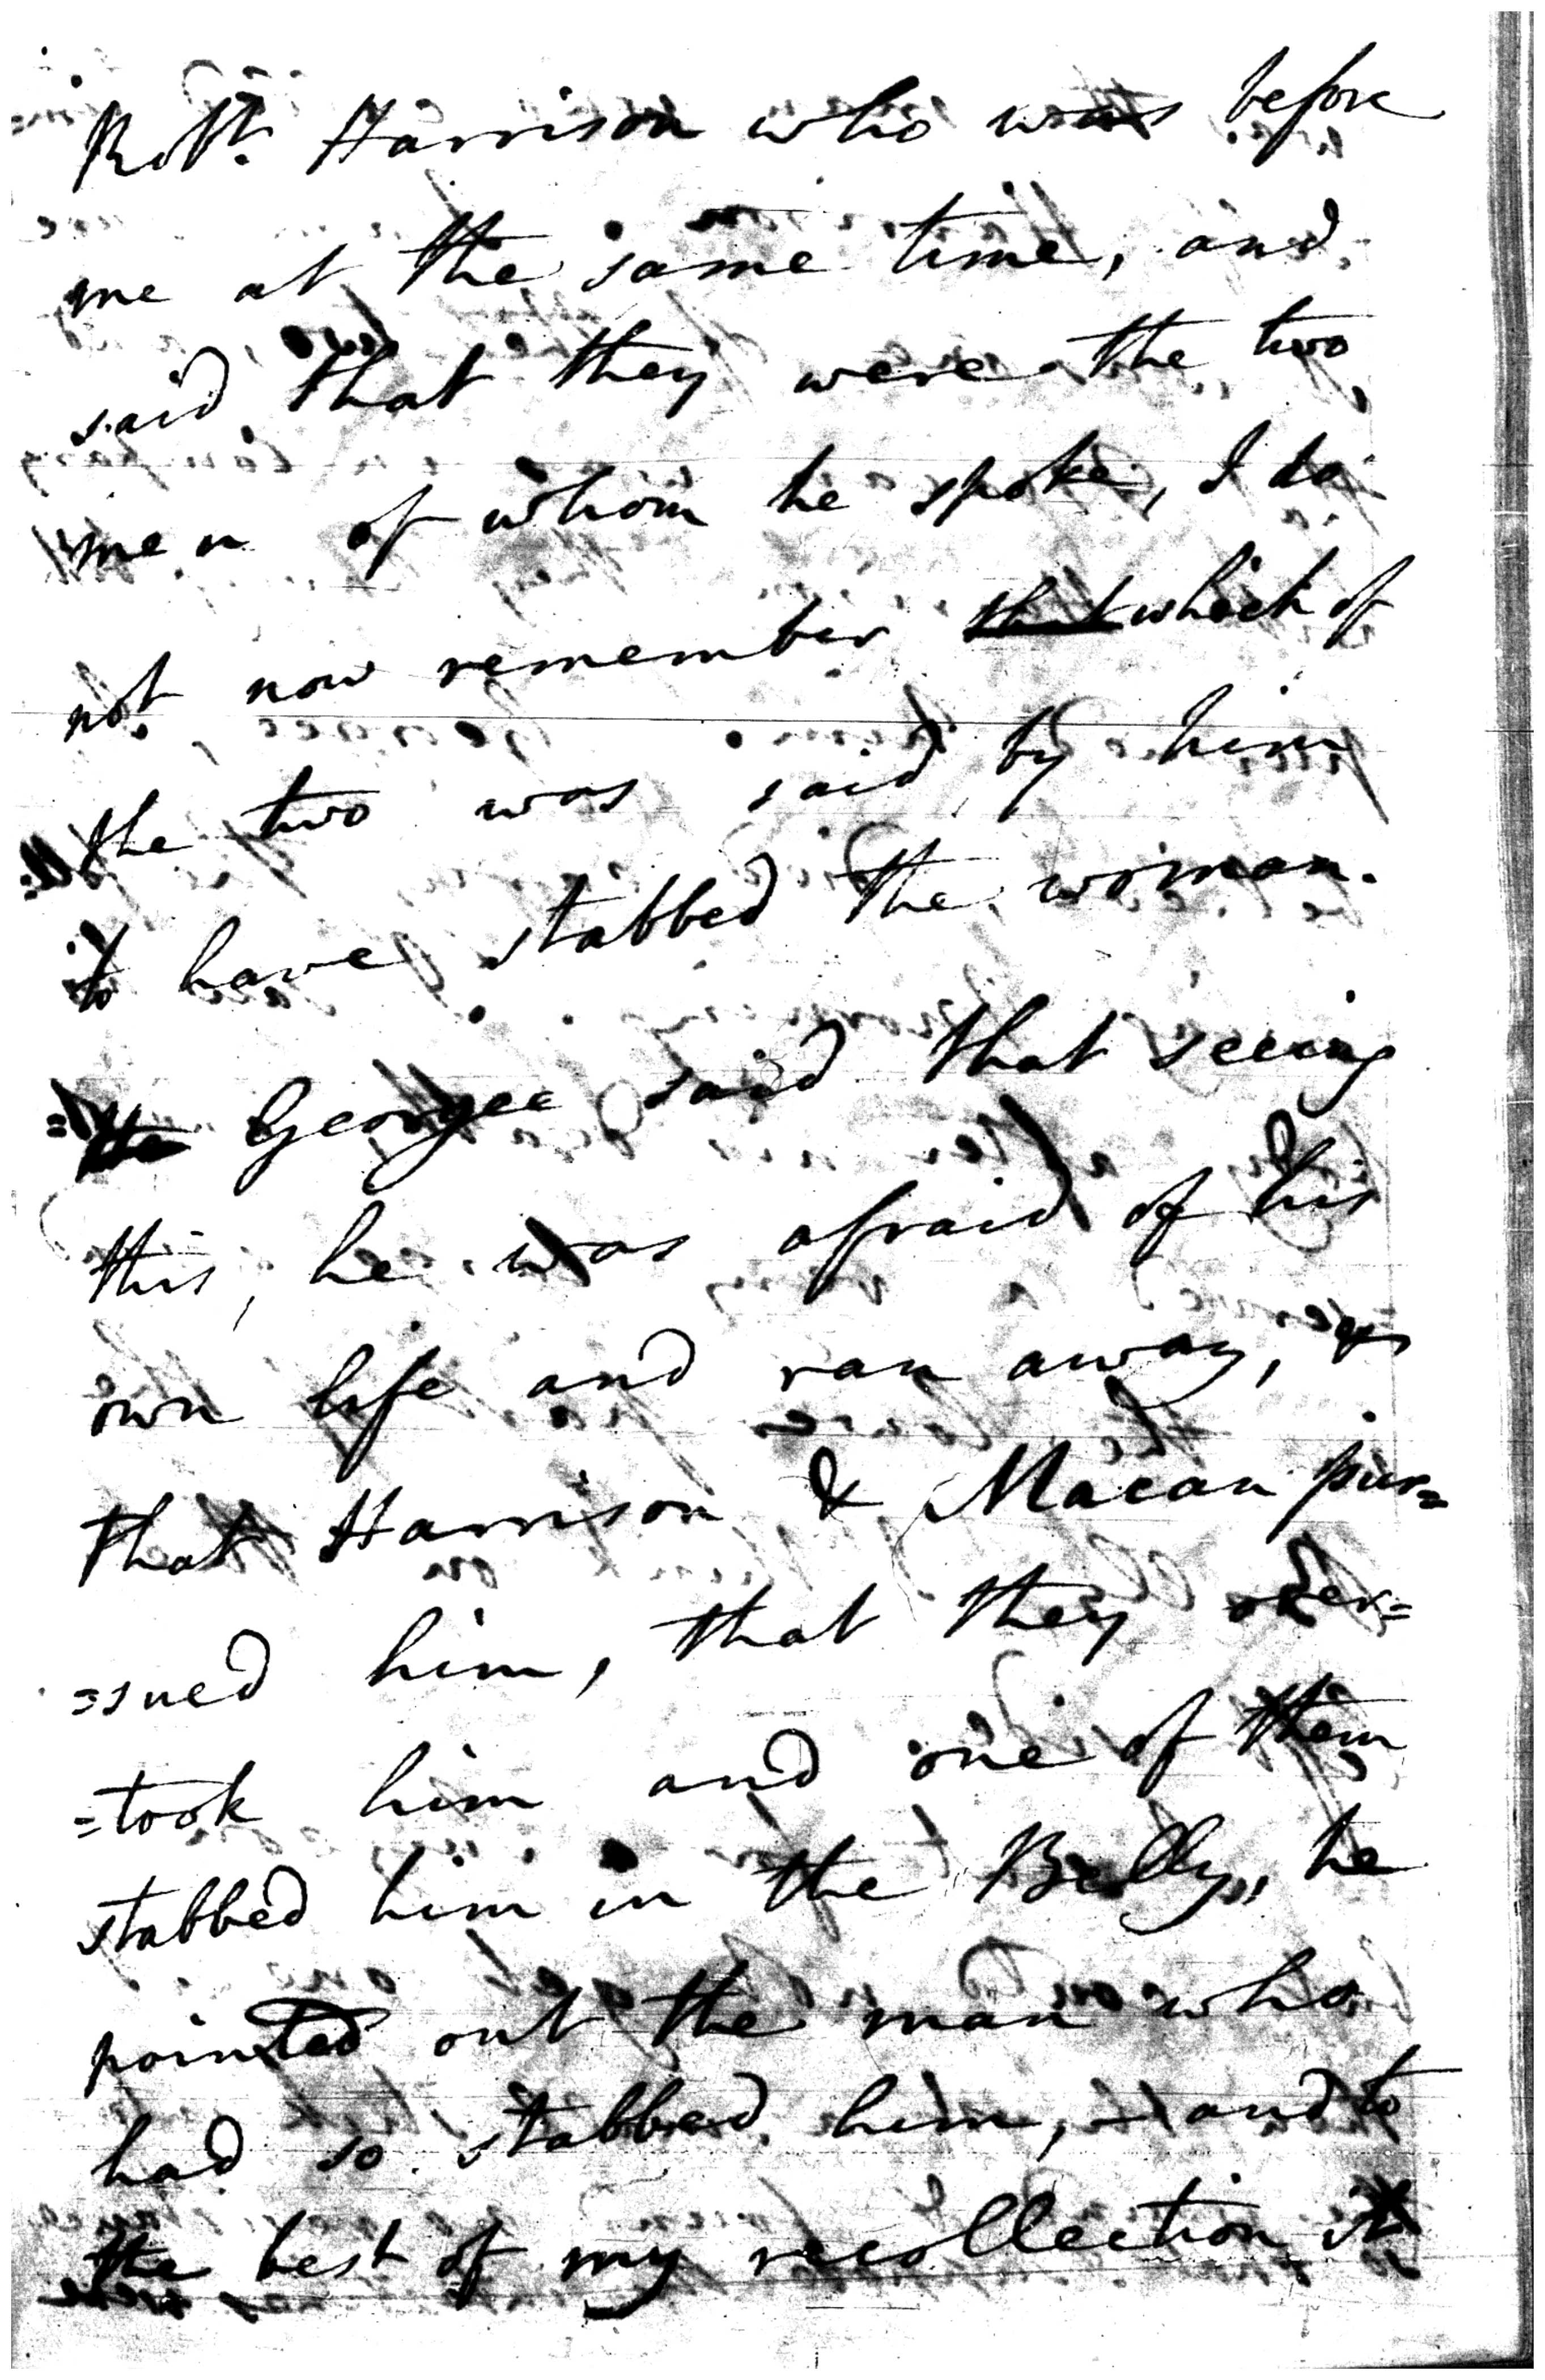 Robt. Harrison who was before
me at the same time, and
said that they were the two
men of whom he spoke, I do
not now remember that which of
the two was said by him
to have stabbed the woman.
George said that seeing
this, he was afraid of his
own life and ran away,
that Harrison & Macan pur=
=sued him, that they over=
=took him and one of them
stabbed him in the Belly, he
pointed out the man who
had so stabbed him, and to
the best of my recollection it